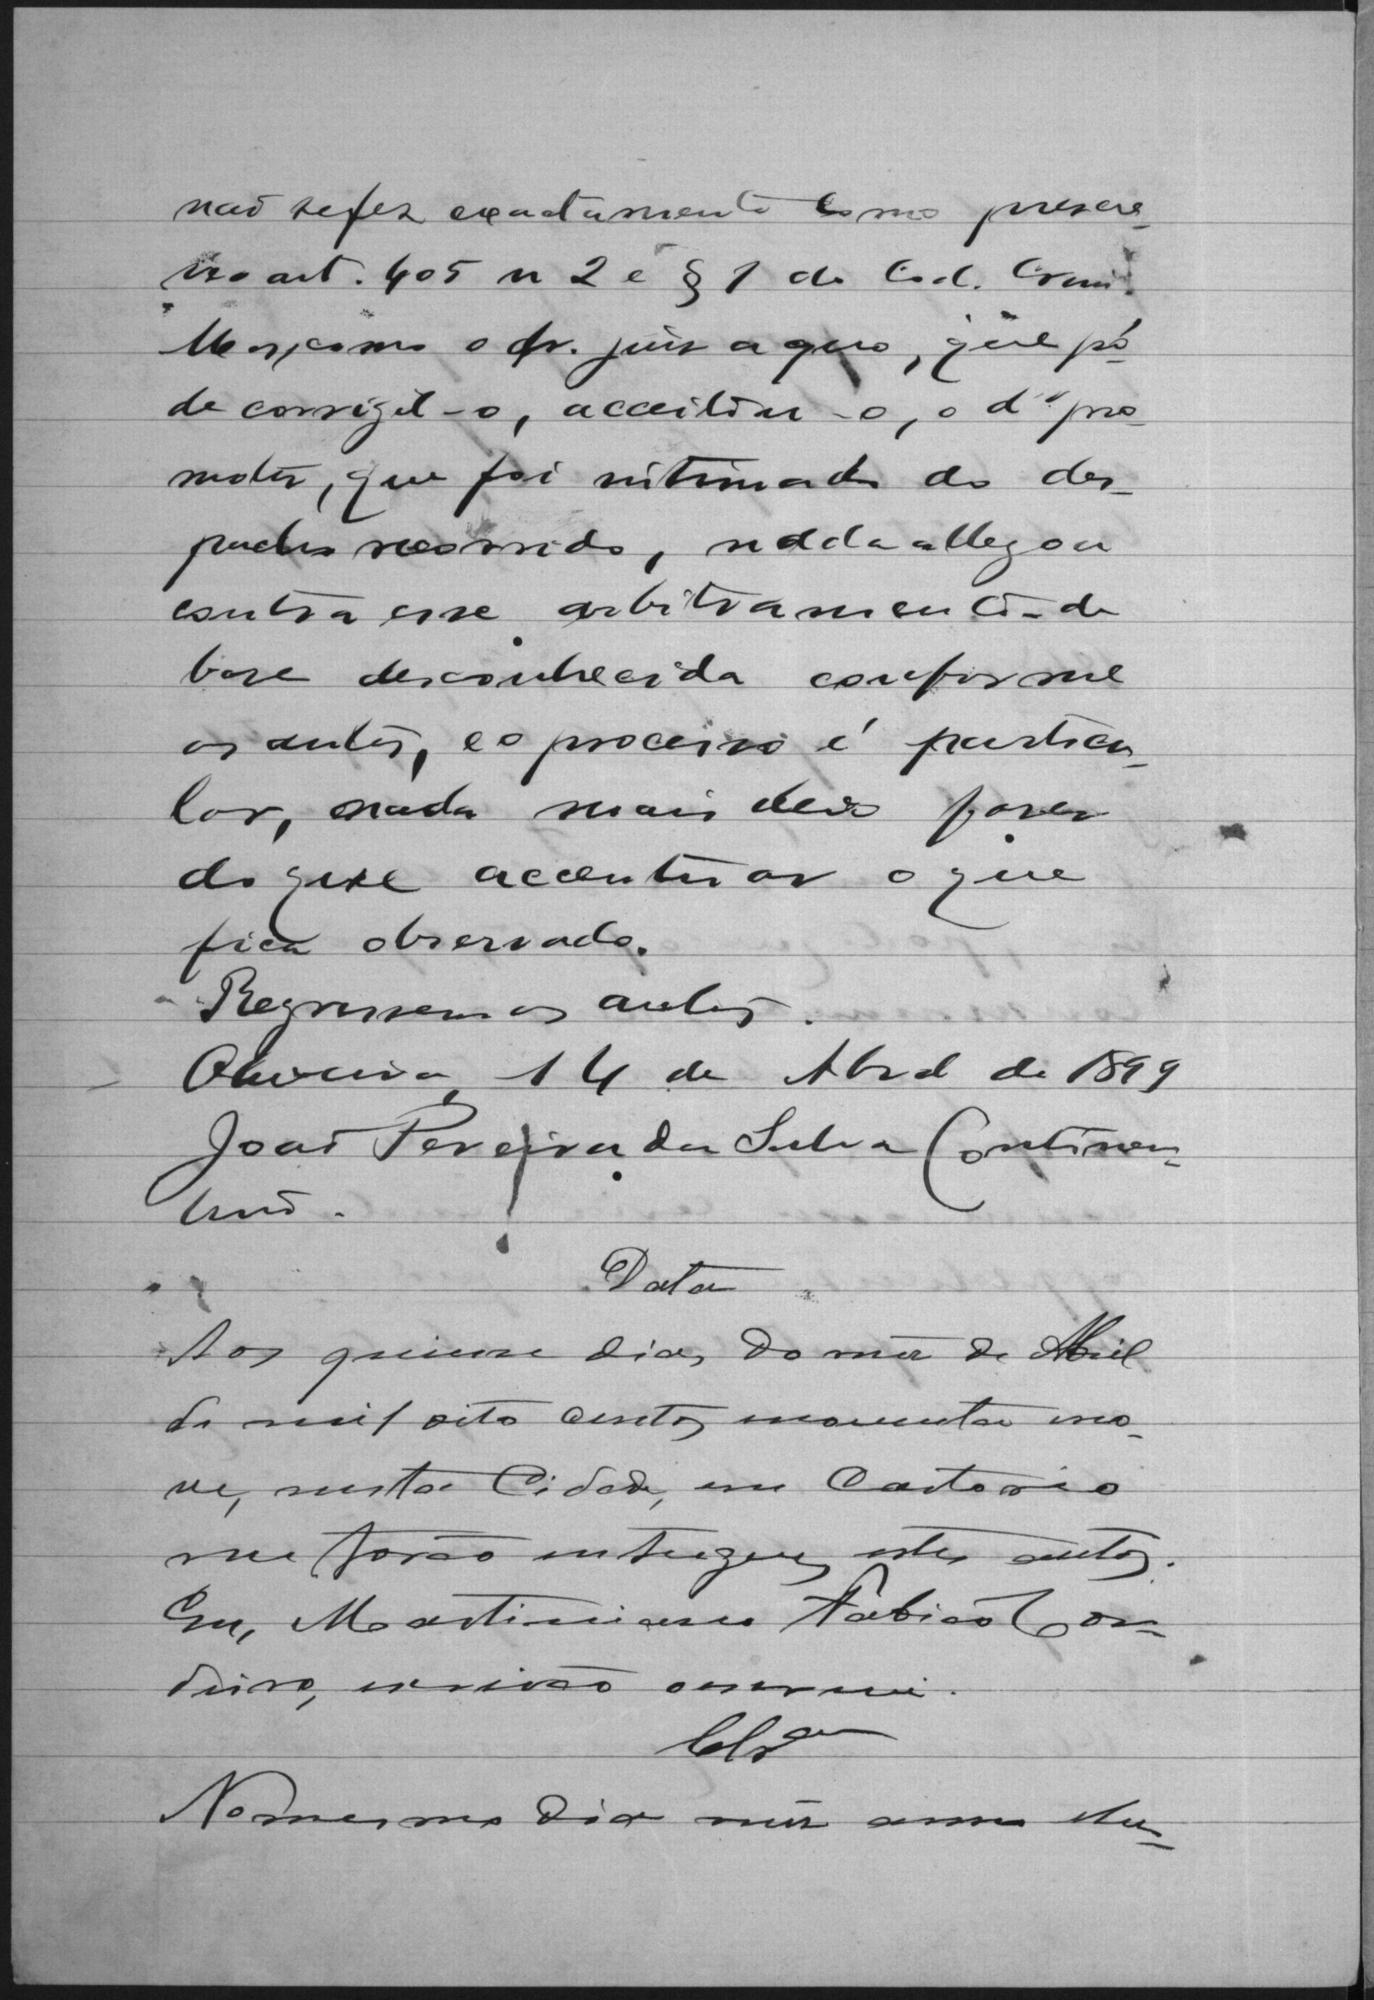 não se fez exactamente como prescre-
ve o art. 405 n 2 e § 1 do Cod. Crim.
Mas, como o dr. juiz a quo, que pó-
de corrigil-o, acceitou-o, o dr. pro-
motor, que foi intimado do des-
pacho recorrido, nada allegou
contra esse arbitramento de
base desconhecida conforme
os autos, e o processo é particu-
lar, nada mais devo fazer
do que accentuar o que
fica observado.
Regressem os autos.
Oliveira, 14 de Abril de 1899
João Pereira da Silva Continen-
tino.
Data
Aos quinze dias do mez de Abril
de mil oito centos noventa no-
ve, nesta Cidade, em Cartorio
me forão entregues estes autos.
Eu, Martiniano Fabião Cor-
deiro, escrivão escrevi.
Clsam
No mesmo dia mez anno